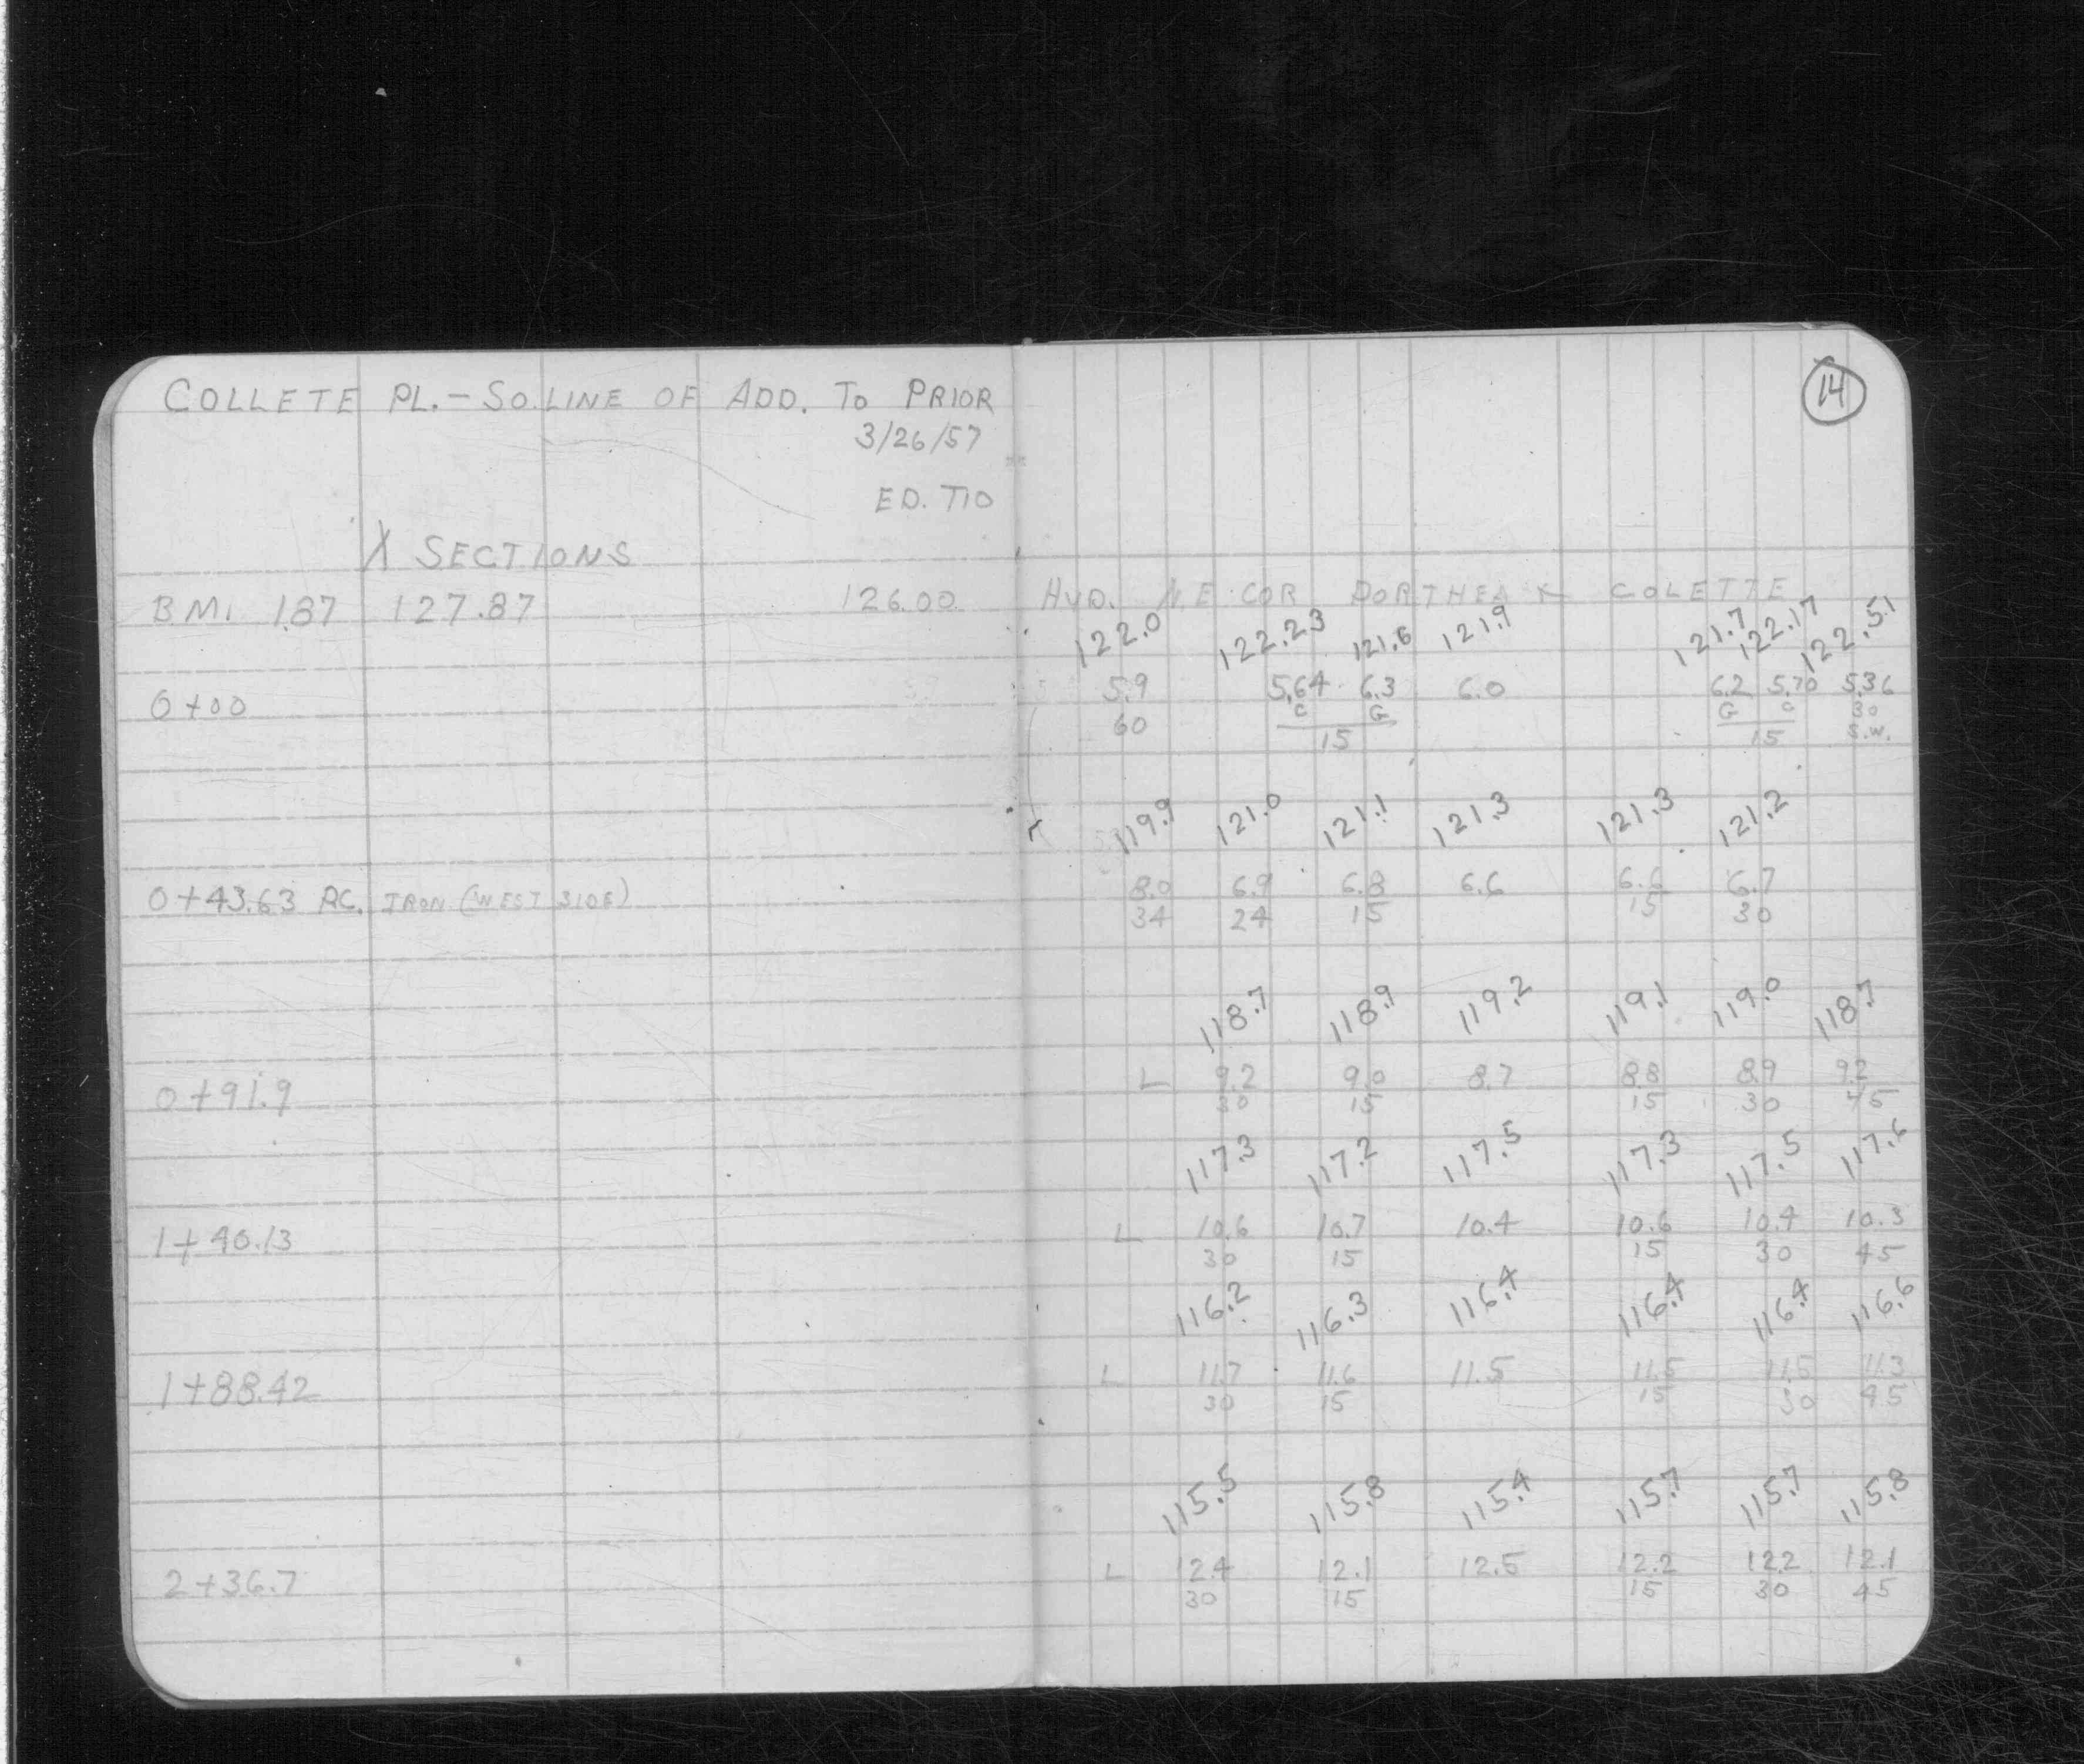 COLLETE PL. - SO. LINE OF ADD. TO PRIOR
3/26/57
ED. TIO
X SECTIONS
14
B.M. 1.87 127.87 126.00 HYD. N.E. COR DORTHEA & COLETTE
122.0 122.23 121.6 121.9 121.7 122.17 122.51
0+00 5.9 5.64 6.3 6.0 6.2 5.70 5.36
60 C G G C 30
15 15 S.W.
119.9 121.0 121.1 121.3 121.3 121.2
0+43.63 P.C. IRON (WEST SIDE) 8.0 6.9 6.8 6.6 6.6 6.7
34 24 15 15 30
118.7 118.9 119.2 119.1 119.0 118.7
0+91.9 L 9.2 9.0 8.7 8.8 8.9 9.2
30 15 15 30 45
117.3 117.2 117.5 117.3 117.5 117.6
1+40.13 L 10.6 10.7 10.4 10.6 10.4 10.3
30 15 15 30 45
116.2 116.3 116.4 116.4 116.4 116.6
1+88.42 L 11.7 11.6 11.5 11.5 11.5 11.3
30 15 15 30 45
115.5 115.8 115.4 115.7 115.7 115.8
2+36.7 L 12.4 12.1 12.5 12.2 12.2 12.1
30 15 15 30 45